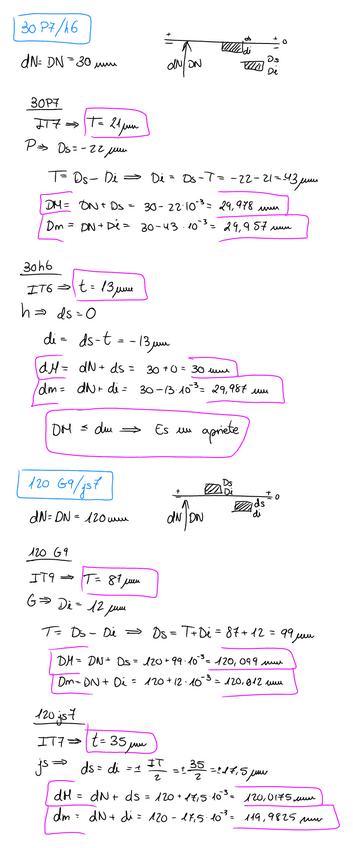 30 P7/h6
dN = DN = 30 mm
+ ds 0
- di
dN DN Ds
Di
30P7
IT7 ⇒ T = 21 μm
P ⇒ Ds = -22 μm
T = Ds - Di ⇒ Di = Ds - T = -22 - 21 = -43 μm
DM = DN + Ds = 30 - 22·10⁻³ = 29,978 mm
Dm = DN + Di = 30 - 43·10⁻³ = 29,957 mm
30h6
IT6 ⇒ t = 13 μm
h ⇒ ds = 0
di = ds - t = -13 μm
dM = dN + ds = 30 + 0 = 30 mm
dm = dN + di = 30 - 13·10⁻³ = 29,987 mm
DM ≤ dm ⇒ Es un apriete
120 G9/js7
dN = DN = 120 mm
Ds
+ Di + 0
- ds
dN DN di
120 G9
IT9 ⇒ T = 87 μm
G ⇒ Di = 12 μm
T = Ds - Di ⇒ Ds = T + Di = 87 + 12 = 99 μm
DM = DN + Ds = 120 + 99·10⁻³ = 120,099 mm
Dm = DN + Di = 120 + 12·10⁻³ = 120,012 mm
120 js7
IT7 ⇒ t = 35 μm
js ⇒ ds = di = ± IT/2 = ± 35/2 = ±17,5 μm
dM = dN + ds = 120 + 17,5·10⁻³ = 120,0175 mm
dm = dN + di = 120 - 17,5·10⁻³ = 119,9825 mm